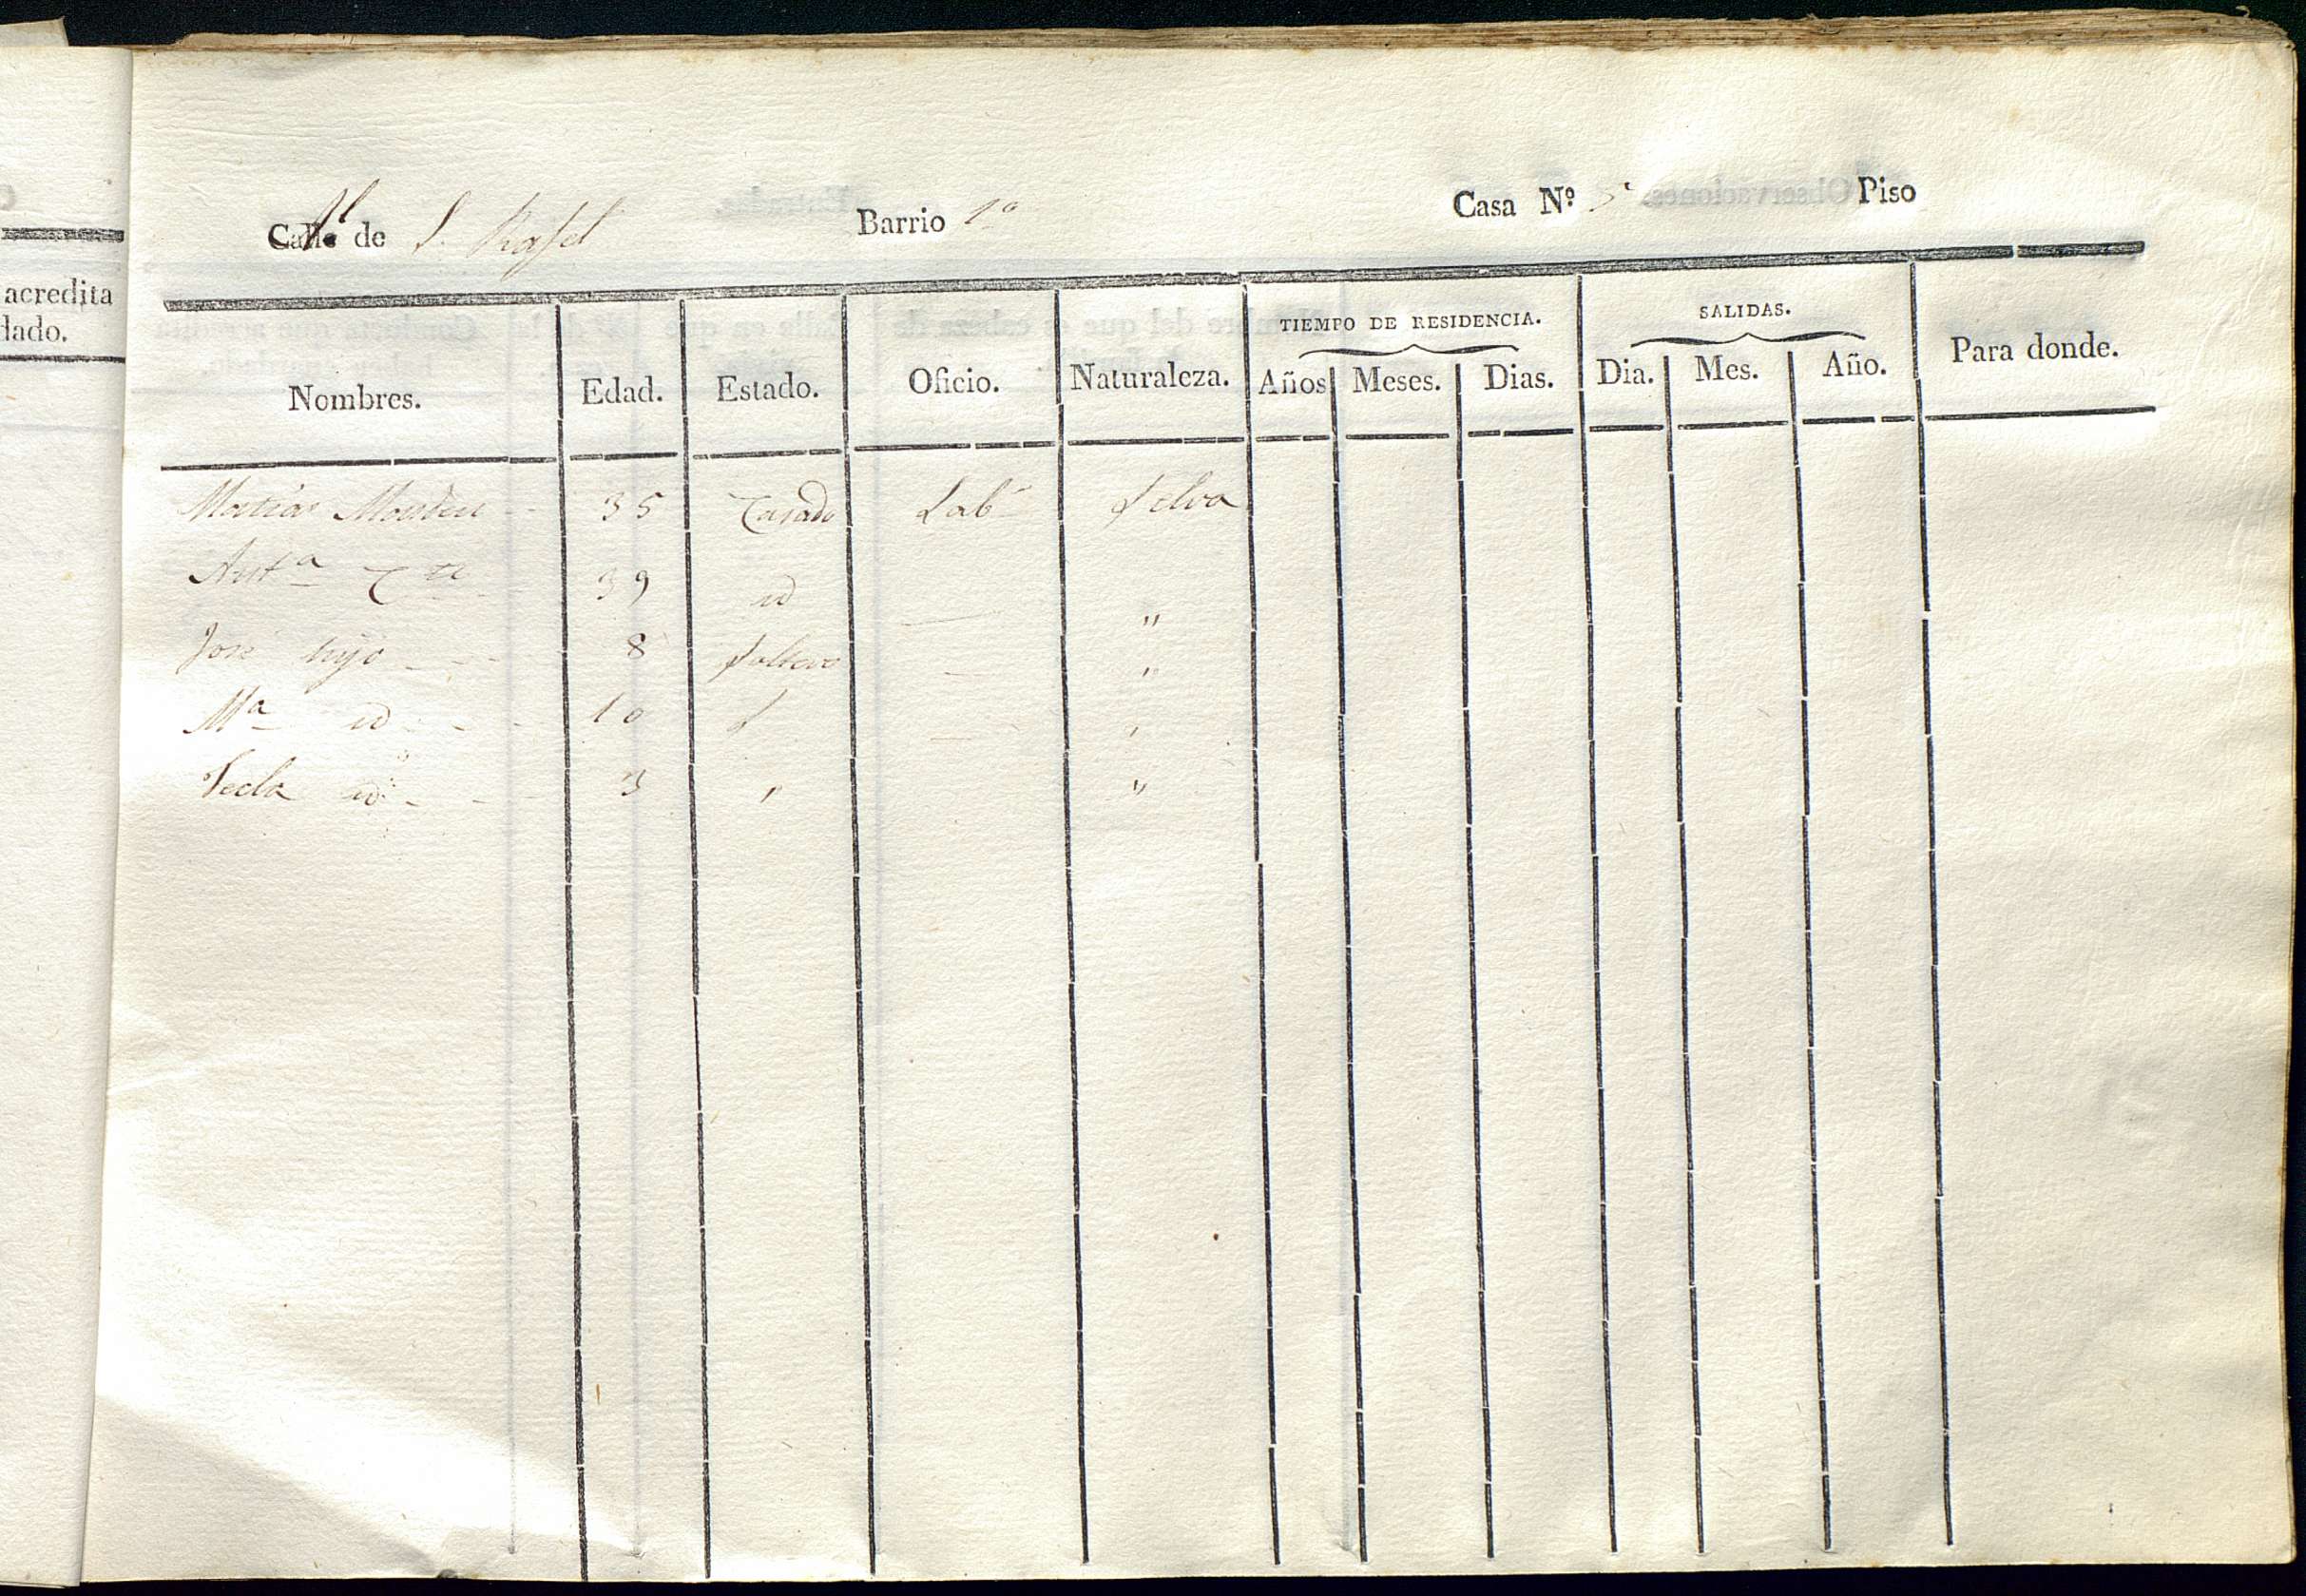 acredita
dado.
Calle de S. Rafel Barrio 1º Casa Nº 5 Piso
TIEMPO DE RESIDENCIA. SALIDAS.
Nombres. Edad. Estado. Oficio. Naturaleza. Años Meses. Dias. Dia. Mes. Año. Para donde.
Matias 35 Casado Labr Selva
Antª 39 id — "
José hijo - - - 8 Soltero — "
Mª id - - - 10 — "
Tecla id - - 3 " "